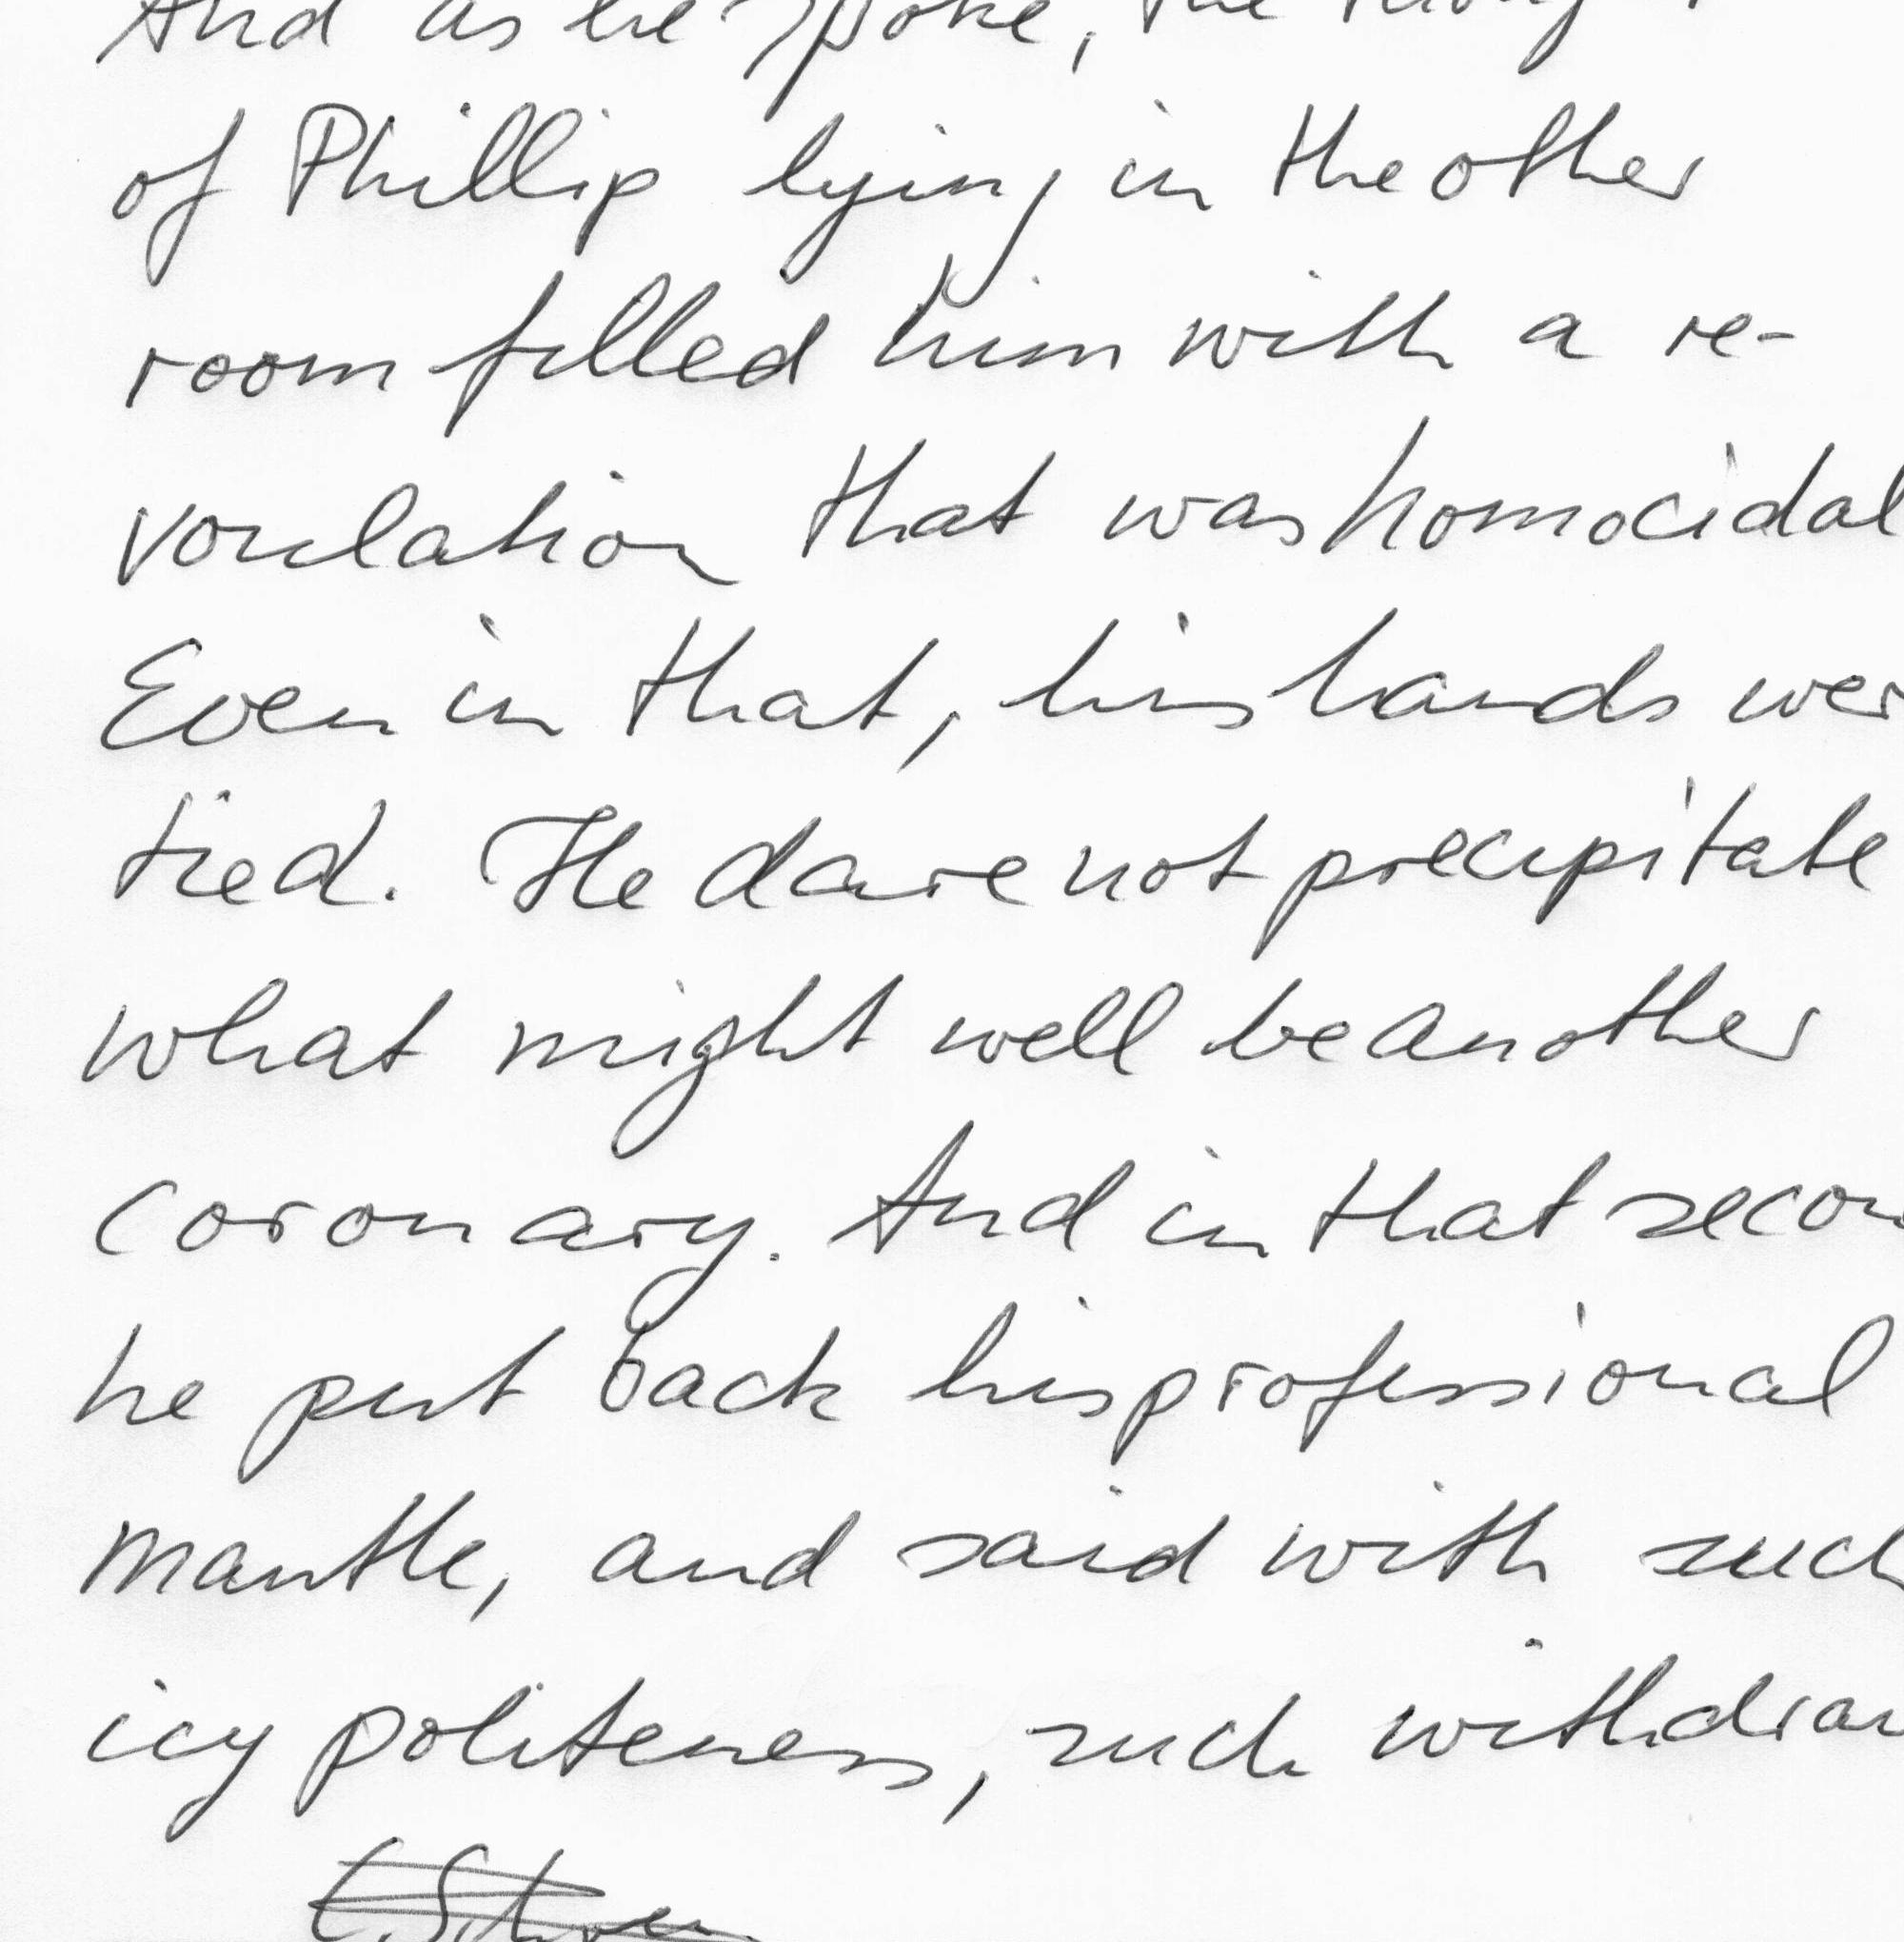 And as he spoke, the thought
of Phillip lying in the other
room filled him with a re-
voulation that was homocidal
Even in that, his hands wer
tied. He dare not precipitate
what might well be another
coronary. And in that secon
he put back his professional
mantle, and said with such
icy politeness, such withdraw